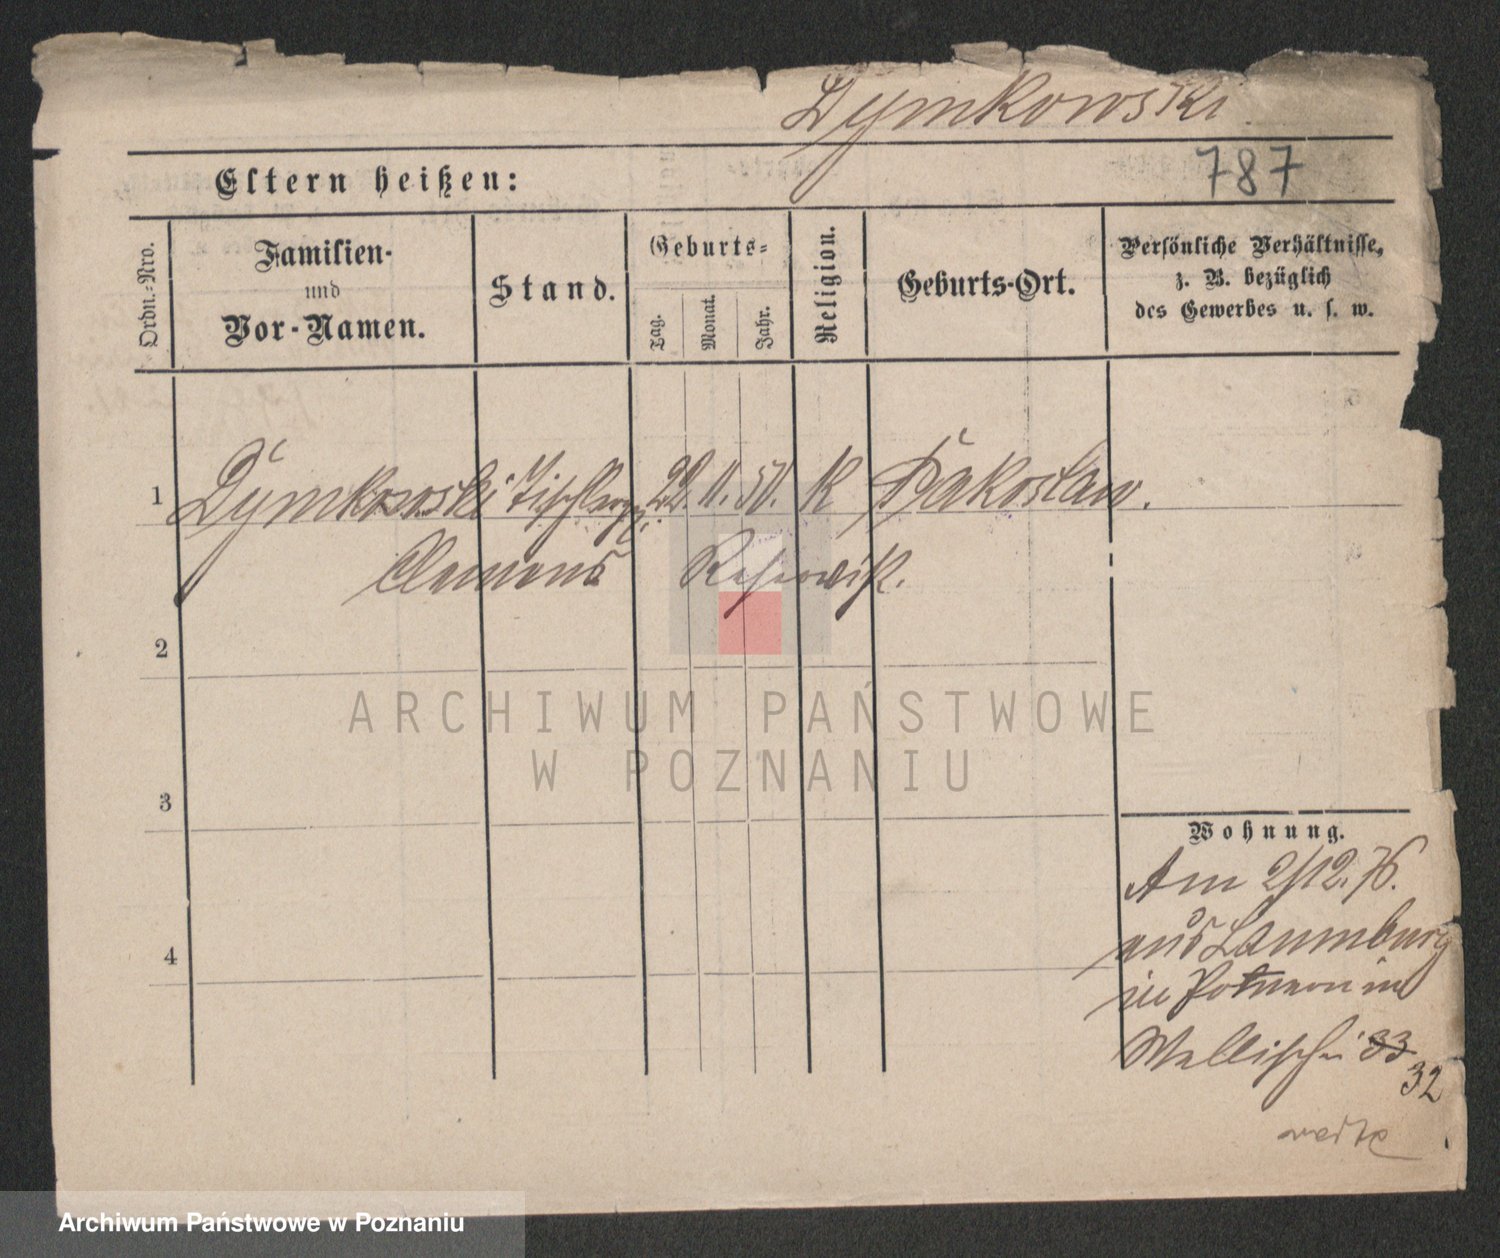 Dymkowski
787
Eltern heißen:
Ordn.-Nro.
Familien-
und
Vor-Namen.
Stand.
Geburts-
Tag.
Monat.
Jahr.
Religion.
Geburts-Ort.
Persönliche Verhältnisse,
z. B. bezüglich
des Gewerbes u. s. w.
1 Dymkowski Tischlerges. 22. 11. 50. K Bąkosław.
Clemens Reservist.
2
3
4
Wohnung.
Am 2/12.76.
aus Lauenburg
in Pommern in
Wallischei 33
32
ARCHIWUM PAŃSTWOWE
W POZNANIU
Archiwum Państwowe w Poznaniu